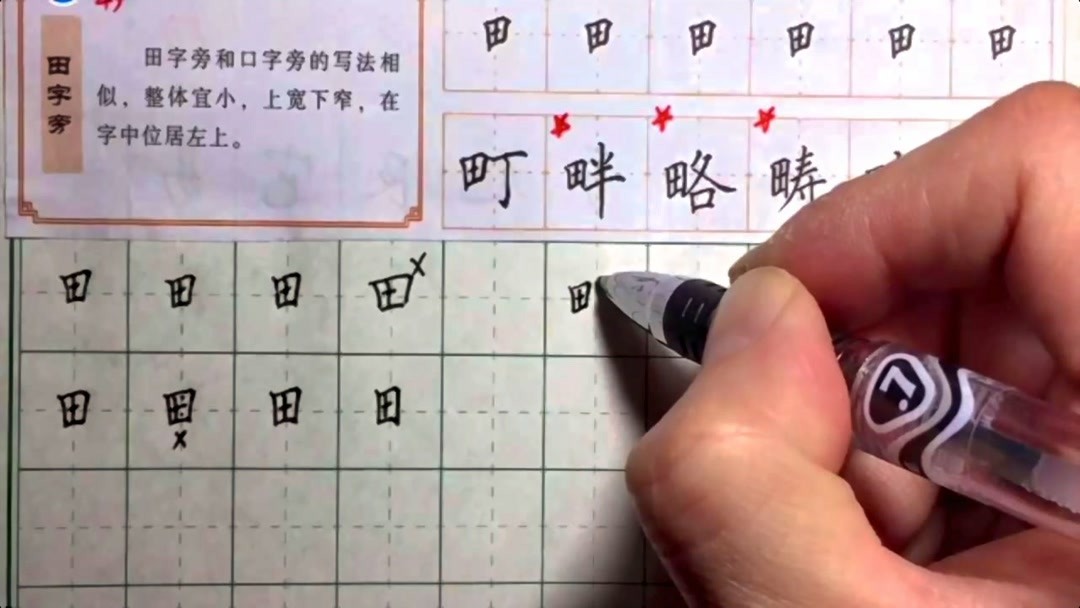 田字旁
田字旁和口字旁的写法相
似，整体宜小，上宽下窄，在
字中位居左上。
田 田 田 田 田 田
町 畔 略 畴
田 田 田 田 x 田
田 田 田 田
x
.7